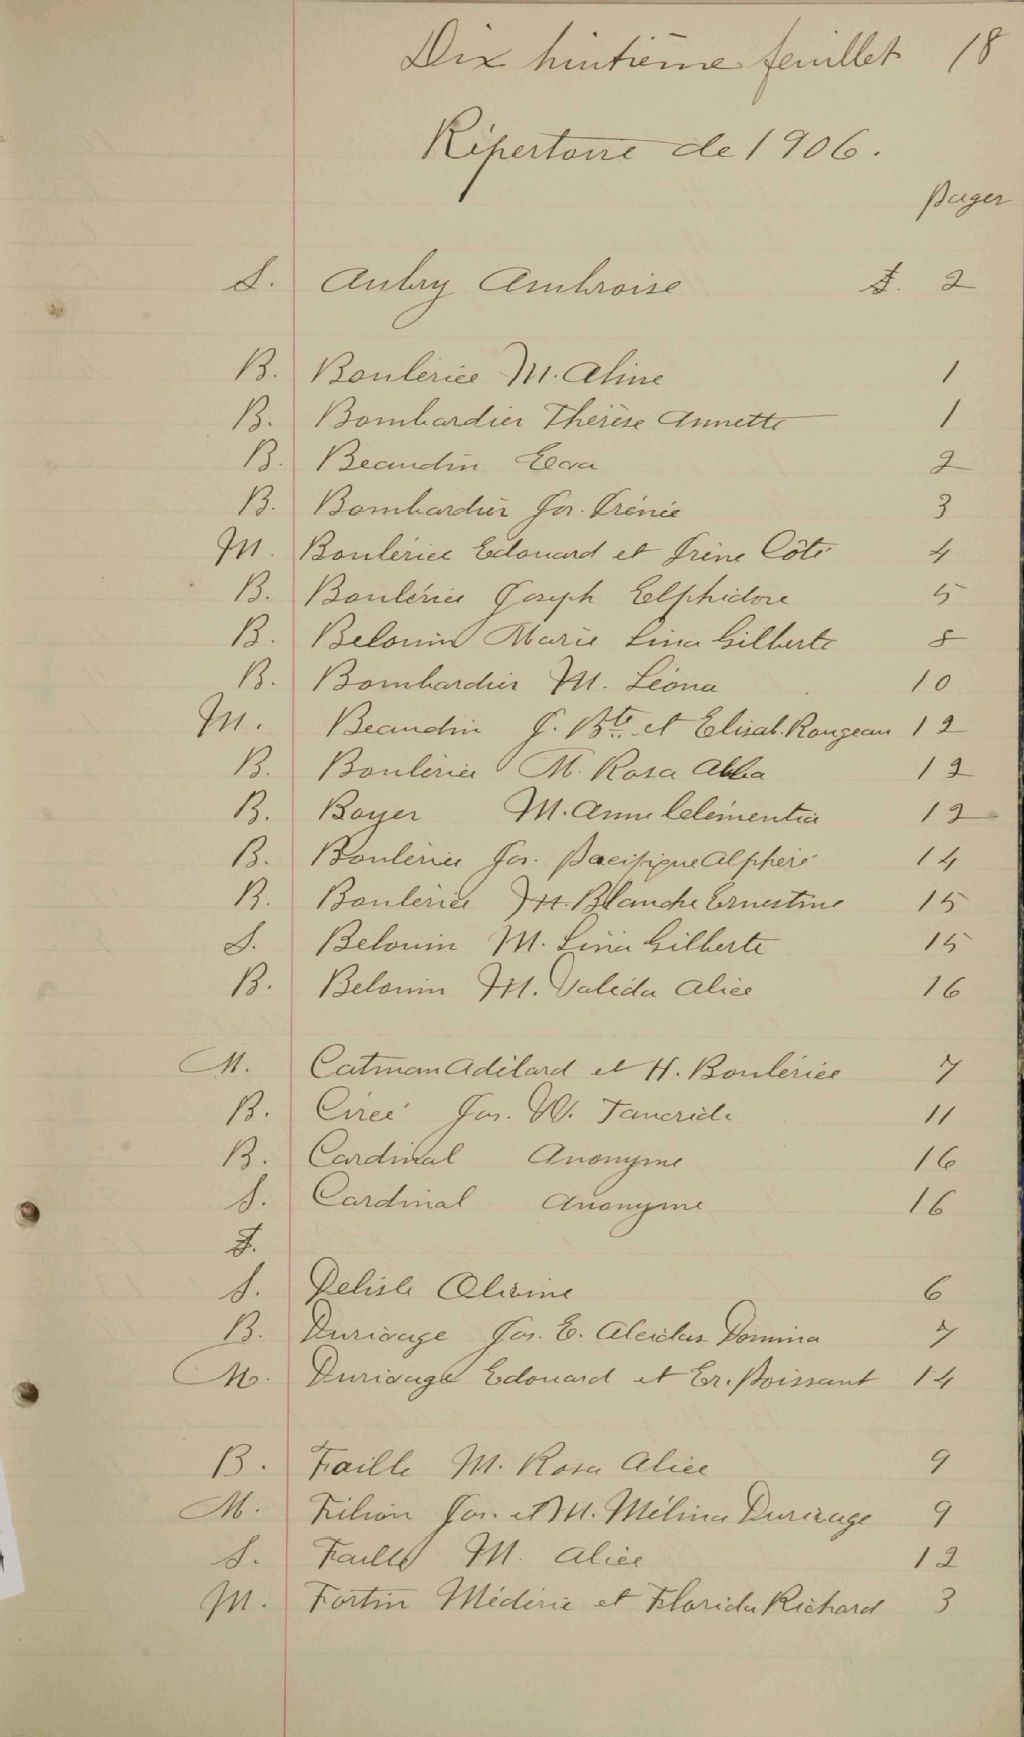 Dix huitième feuillet 18
Répertoire de 1906.
pages
S. Aubry Ambroise S. 2
B. Boulérice M. Aline 1
B. Bombardier Thérèse Annette 1
B. Beaudin Eva 2
B. Bombardier Jos. Irénée 3
M. Boulérice Edouard et Irène Côté 4
B. Boulérice Joseph Elphidore 5
B. Belouin Marie Lina Gilberte 8
B. Bombardier M. Léona 10
M. Beaudin J. Bte et Elisab. Rougeau 12
B. Boulérice M. Rosa Alba 12
B. Boyer M. Anne Clémentia 12
B. Boulérice Jos. Pacifique Alphéré 14
B. Boulérice M. Blanche Ernestine 15
S. Belouin M. Lina Gilberte 15
B. Belouin M. Valéda Alice 16
M. Catman Adélard et H. Boulérice 7
B. Circé Jos. W. Tancrède 11
B. Cardinal Anonyme 16
S. Cardinal Anonyme 16
S.
S. Delisle Olivine 6
B. Durivage Jos. E. Alcidas Domina 7
M. Durivage Edouard et Er. Poissant 14
B. Faille M. Rosa Alice 9
M. Filion Jos. et M. Mélina Durivage 9
S. Faille M. Alice 12
M. Fortin Médéric et Florida Richard 3